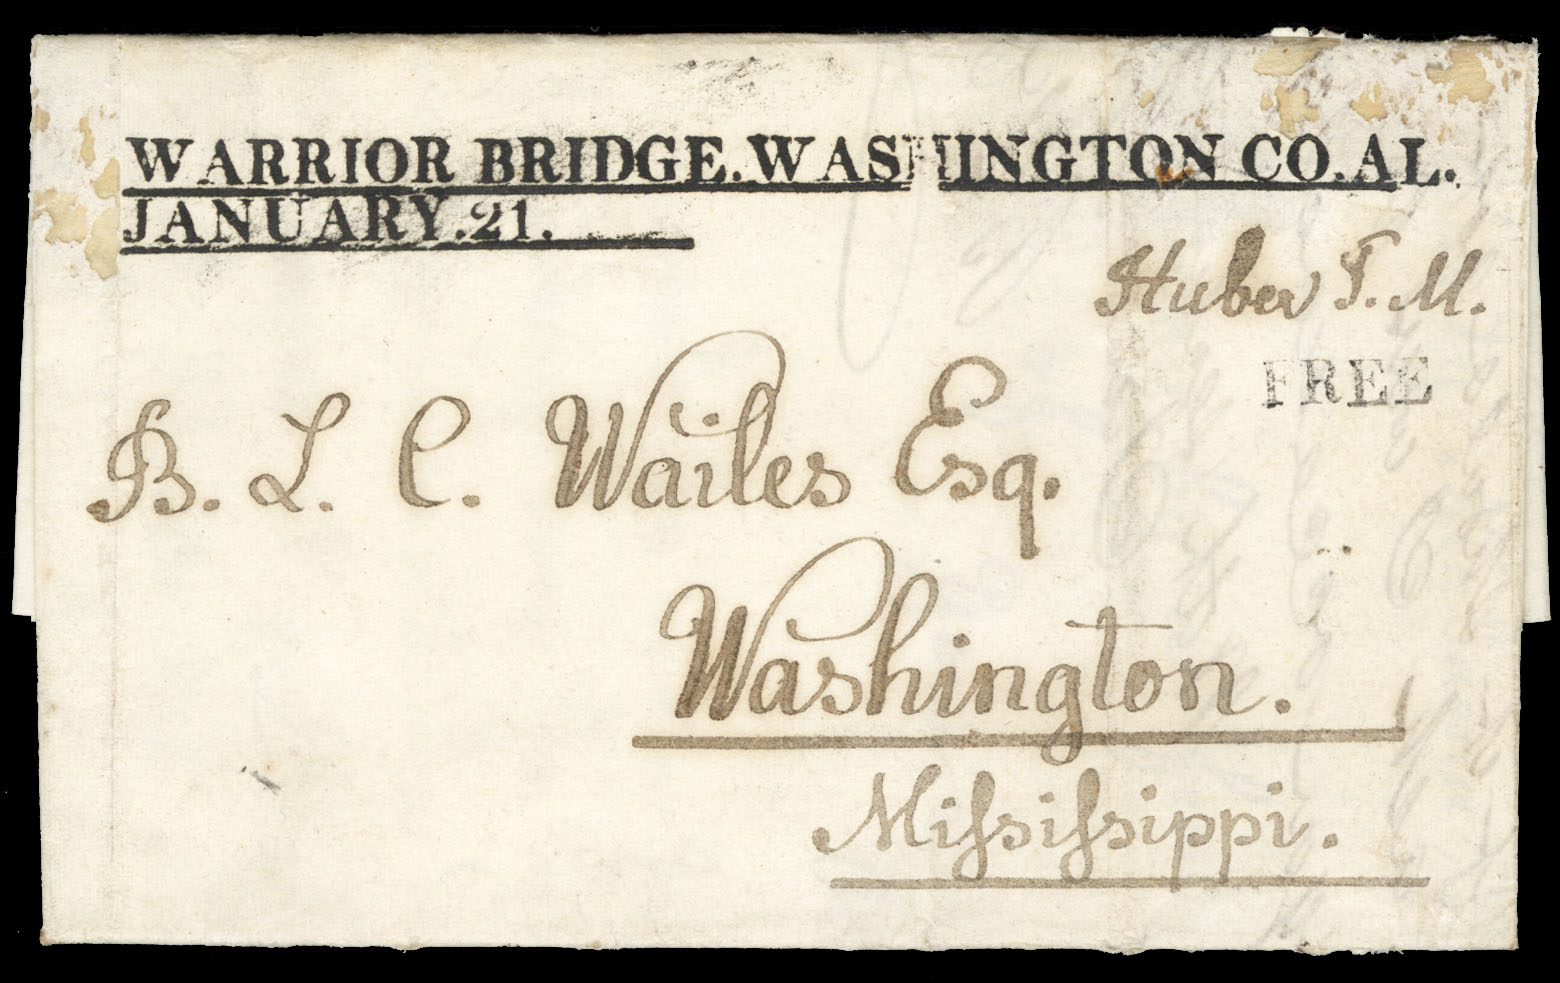 WARRIOR BRIDGE. WASHINGTON CO. AL.
JANUARY. 21.
Huber P. M.
FREE
B. L. C. Wailes Esq.
Washington.
Miſsiſsippi.